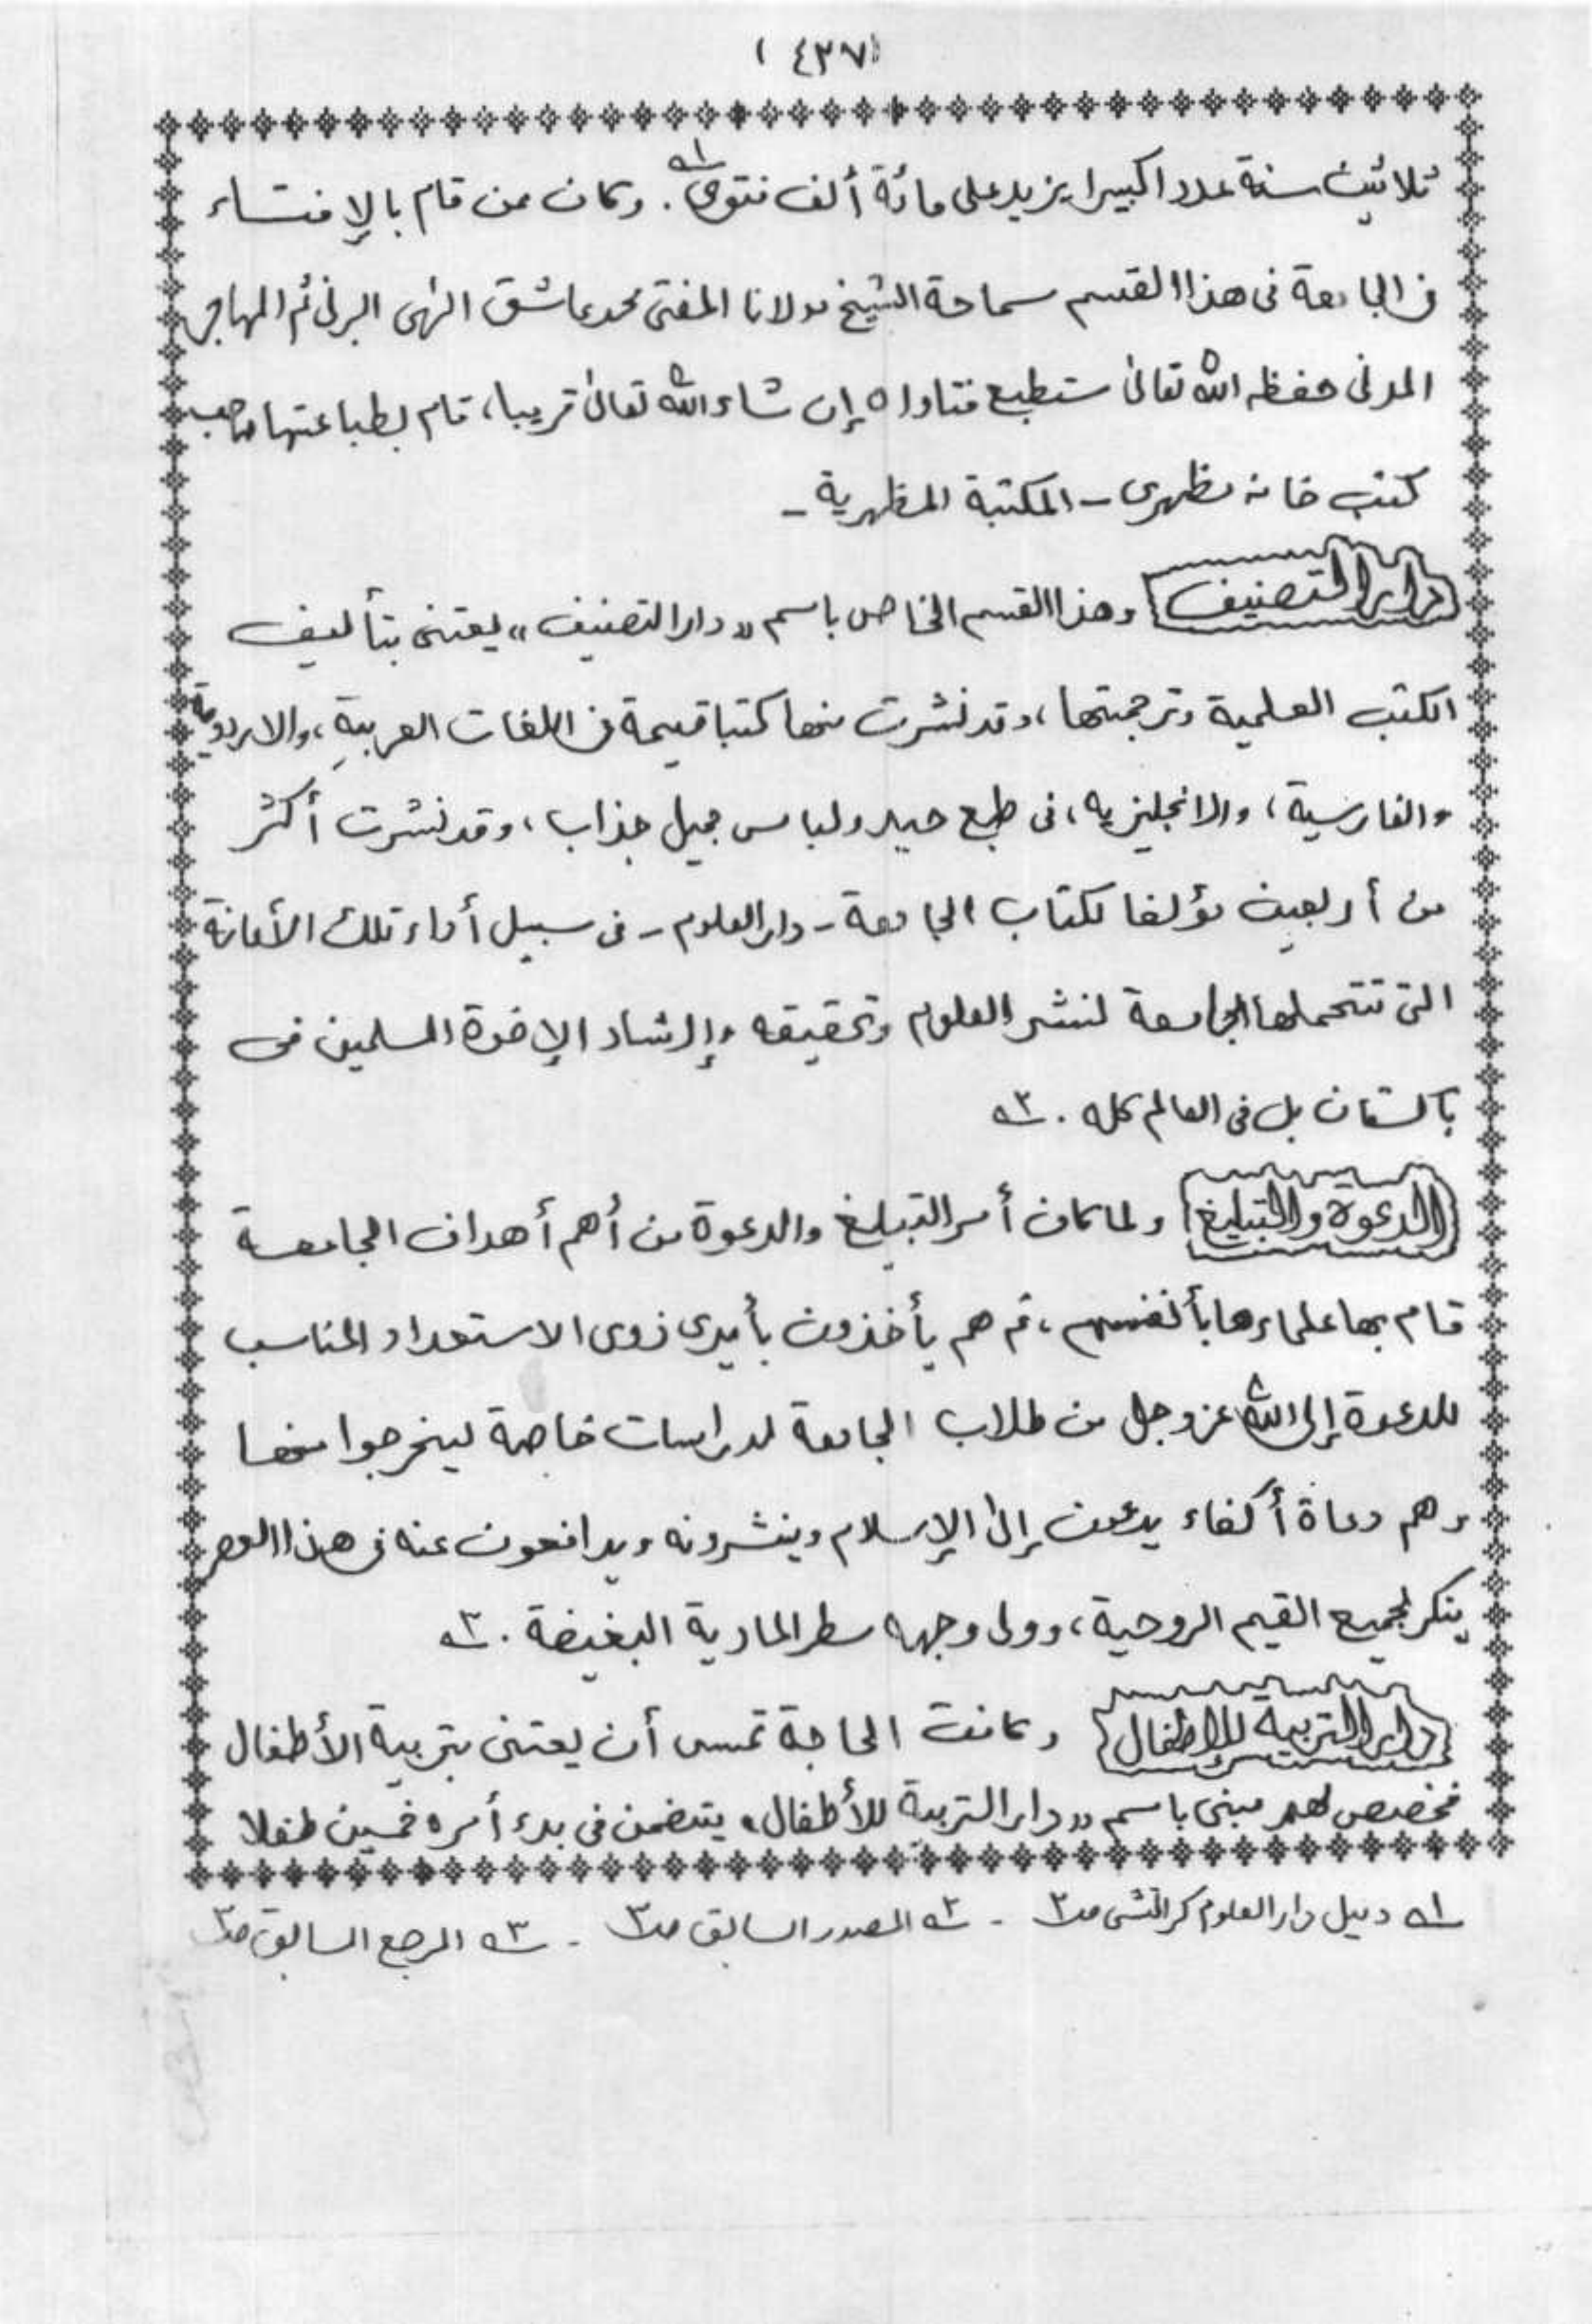 (٤٣٧)
ثلاثين سنة عددا كبيرا يزيد على مائة ألف فتوى ١ـه. وكان ممن قام بالإفتاء
فى الجامعة فى هذا القسم سماحة الشيخ مولانا المفتى محمد عاشق الٰهى البرنى ثم المهاجر
المدنى حفظه الله تعالىٰ ستطبع فتاواه إن شاء الله تعالىٰ قريبا، قام بطباعتها صاحب
كتب خانه مظهرى ـ المكتبة المظهرية ـ
دار التصنيف وهذا القسم الخاص باسم ״دار التصنيف״ يعتنى بتأليف
الكتب العلمية وترجمتها، وقد نشرت منها كتبا قيمة فى اللغات العربيةِ، والاردوية
والفارسية، والانجليزيه، فى طبع جيد ولباس جميل جذاب، وقد نشرت أكثر
من أربعين مؤلفا لكتاب الجامعة ـ دار العلوم ـ فى سبيل أداء تلك الأمانة
التى تتحملها الجامعة لنشر العلوم وتحقيقه وإرشاد الإخوة المسلمين فى
باكستان بل فى العالم كله . ٢ـه
الدعوة والتبليغ ولما كان أمر التبليغ والدعوة من أهم أهداف الجامعة
قام بها علماءها بأنفسهم، ثم هم يأخذون بأيدى ذوى الاستعداد المناسب
للدعوة إلى الله عز وجل من طلاب الجامعة لدراسات خاصة ليخرجوا منها
وهم دعاة أكفاء يدعون إلىٰ الإسلام وينشرونه ويدافعون عنه فى هذا العصر
ينكر لجميع القيم الروحية، وولى وجهه سطر المادية البغيضة . ٣ـه
دار التربية للاطفال وكانت الحاجة تمس أن يعتنى بتربية الأطفال
فخصص لهم مبنى باسم ״دار التربية للأطفال״ يتضمن فى بدء أمره خمسين طفلا
١ـه دليل دار العلوم كراتشى صـ٢ ـ ٢ـه المصدر السابق صـ٣ ـ ٣ـه المرجع السابق صـ٣